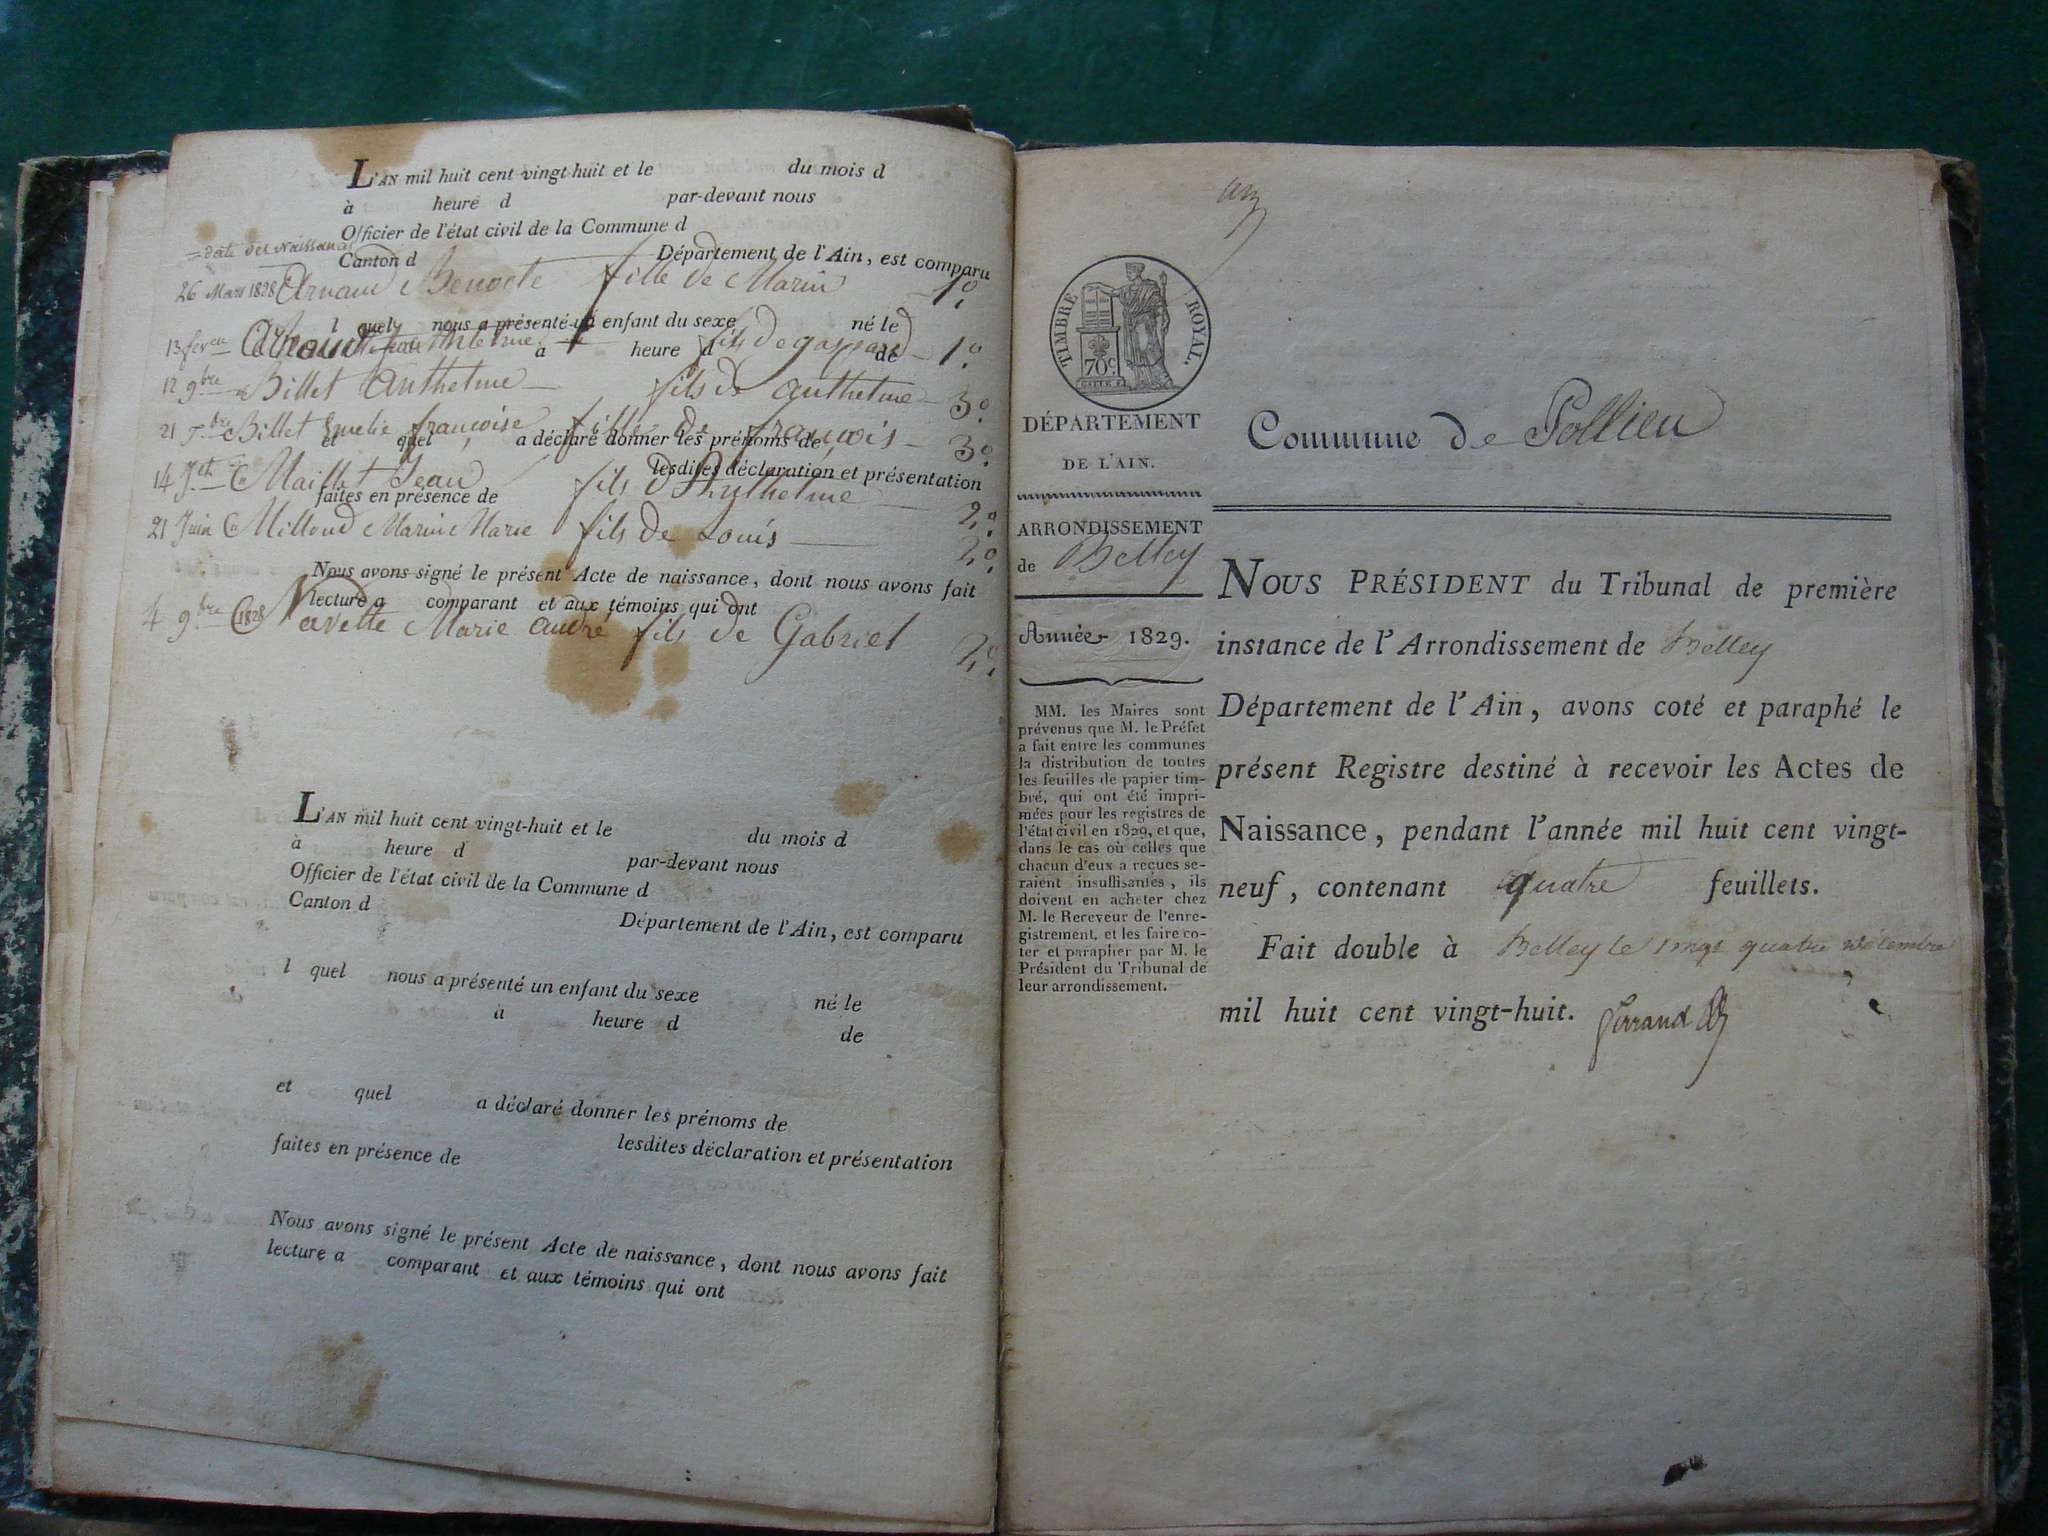 L'AN mil huit cent vingt-huit et le du mois d
à heure d par-devant nous
Officier de l'état civil de la Commune d
= date des Naissances
Canton d Département de l'Ain, est comparu
26 Mars 1828 Arnaud Benoite fille de Marin 1º
l quel nous a présenté un enfant du sexe né le
13 fevr Arnaud Anthelme fils de gaspard 1º
à heure d de
12 9bre Billet Anthelme fils de Anthelme 3º
21 Billet Emelie françoise fille de françois 3º
et quel , a déclaré donner les prénoms de
lesdites déclaration et présentation
14 Maillet Jean fils d'Anthelme 2º
faites en présence de
21 Juin Milloud Marin Marie fils de Louis 2º
Nous avons signé le présent Acte de naissance, dont nous avons fait
lecture a comparant et aux témoins qui ont
4 9bre 1828 Navette Marie André fils de Gabriel 2º
L'AN mil huit cent vingt-huit et le du mois d
à heure d par-devant nous
Officier de l'état civil de la Commune d
Canton d Département de l'Ain, est comparu
l quel nous a présenté un enfant du sexe né le
à heure d de
et quel a déclaré donner les prénoms de
lesdites déclaration et présentation
faites en présence de
Nous avons signé le présent Acte de naissance, dont nous avons fait
lecture a comparant et aux témoins qui ont
TIMBRE ROYAL.
70c.
DÉPARTEMENT
DE L'AIN.
ARRONDISSEMENT
de Belley
Année 1829.
MM. les Maires sont
prévenus que M. le Préfet
a fait entre les communes
la distribution de toutes
les feuilles de papier tim-
bré, qui ont été impri-
mées pour les registres de
l'état civil en 1829, et que,
dans le cas où celles que
chacun d'eux a reçues se-
raient insuffisantes, ils
doivent en acheter chez
M. le Receveur de l'enre-
gistrement, et les faire co-
ter et parapher par M. le
Président du Tribunal de
leur arrondissement.
Commune de Pollieu
NOUS PRÉSIDENT du Tribunal de première
instance de l'Arrondissement de Belley
Département de l'Ain, avons coté et paraphé le
présent Registre destiné à recevoir les Actes de
Naissance, pendant l'année mil huit cent vingt-
neuf, contenant quatre feuillets.
Fait double à Belley le vingt quatre décembre
mil huit cent vingt-huit.